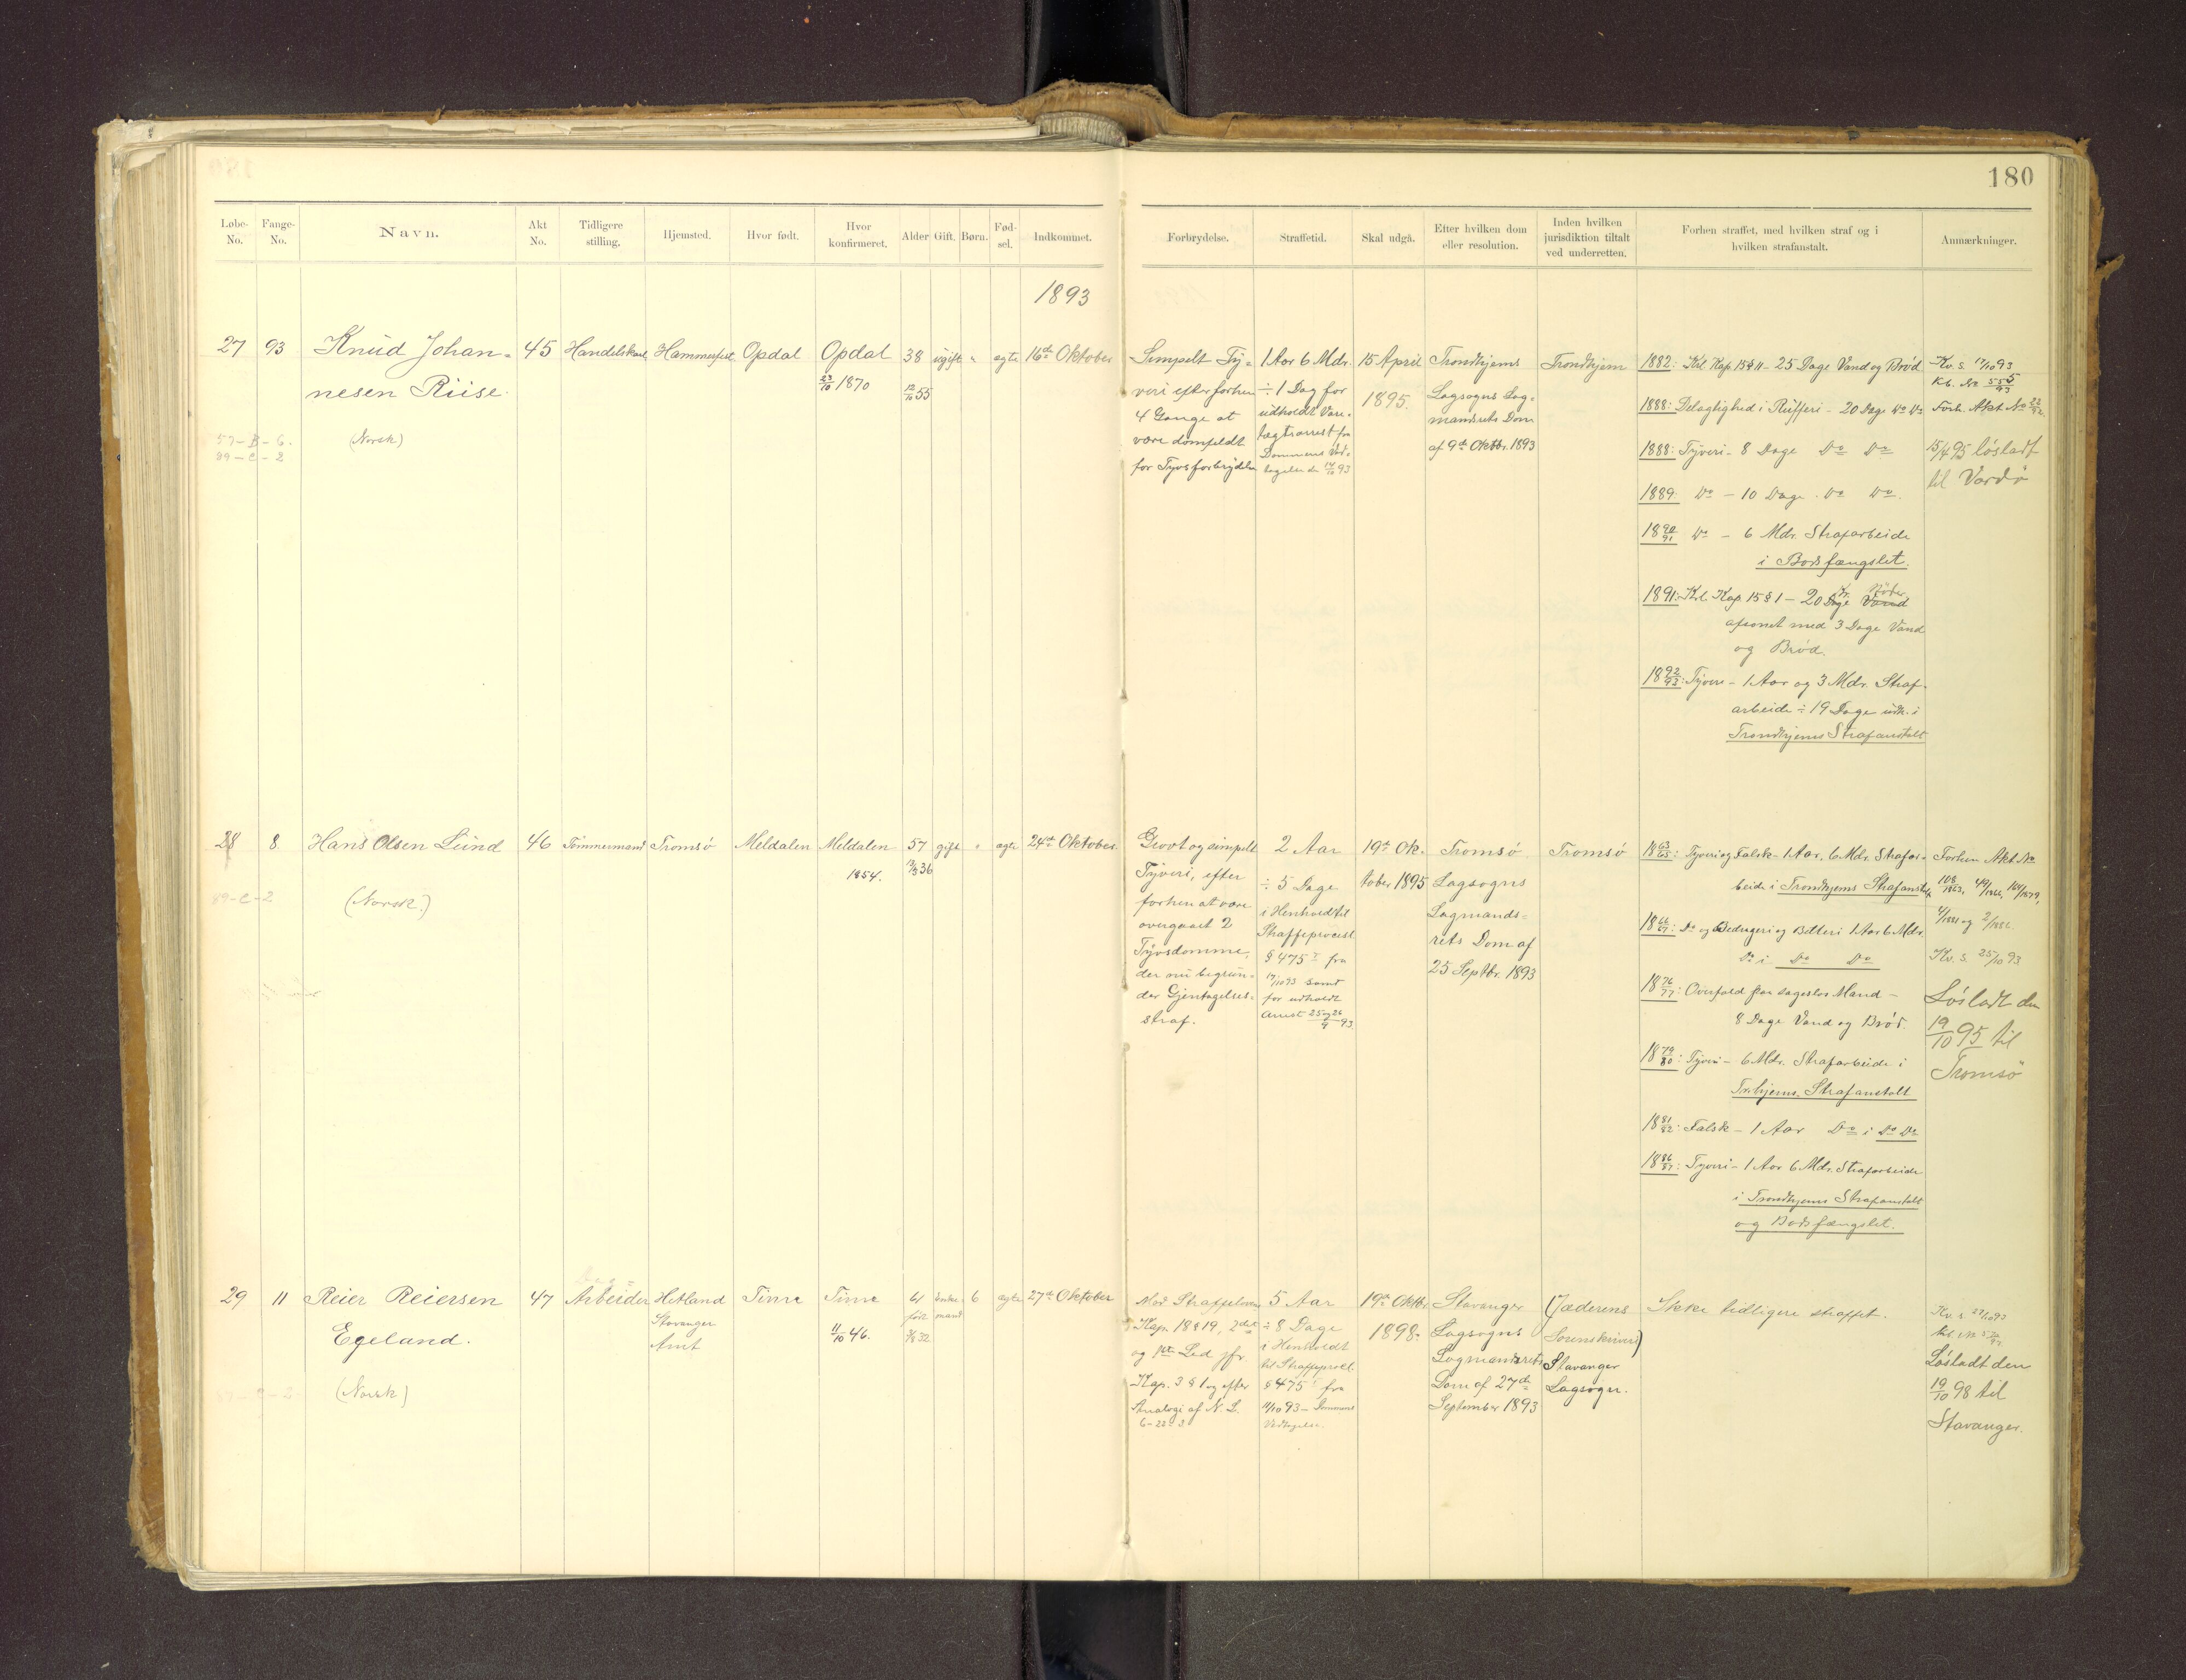 180
Løbe-No.
Fange-No.
Navn.
Akt No.
Tidligere stilling.
Hjemsted.
Hvor født.
Hvor konfirmeret.
Alder
Gift.
Børn.
Fød-sel.
Indkommet.
Forbrydelse.
Straffetid.
Skal udgå.
Efter hvilken dom eller resolution.
Inden hvilken jurisdiktion tiltalt ved underretten.
Forhen straffet, med hvilken straf og i hvilken strafanstalt.
Anmærkninger.
1893
27
93
Knud Johan=
nesen Riise.
(Norsk)
57-B-6.
89-C-2
45
Handelskarl
Hammerfest
Opdal
Opdal
23/10 1870
38
12/10 55
ugift
"
ægte
16de Oktober
Simpelt Ty=
veri efter forhen
4 Gange at
være domfældt
for Tyvsforbrydelse
1 Aar 6 Mdr.
÷ 1 Dag for
udholdt Vare=
tægtsarrest fra
Dommens Ved=
tagelse den 14/10 93
15 April
1895.
Trondhjems
Lagsogns Lag=
mandsrets Dom
af 9de Oktbr. 1893
Trondhjem
1882: Krl. Kap 15 § 11 - 25 Dage Vand og Brød
1888: Delagtighed i Rufferi - 20 Dage Do Do
1888: Tyveri - 8 Dage Do Do
1889: Do - 10 Dage Do Do.
1890/91 Do - 6 Mdr. Strafarbeide
i Bodsfængslet.
1891: Krl. Kap 15 § 1 - 20 Kr. Bøder
afsonet med 3 Dage Vand
og Brød.
1892/93: Tyveri - 1 Aar og 3 Mdr. Straf=
arbeide ÷ 19 Dage udh. i
Trondhjems Strafanstalt
Kv. s. 17/10 93
Kb. No 555/93
Forh. Akt No 22/92
15/4 95 løsladt
til Vardø
28
8
Hans Olsen Lund
(Norsk.)
89-C-2
46
Tømmermand
Tromsø
Meldalen
Meldalen
1854.
57
gift
"
ægte
24de Oktober
Grovt og simpelt
Tyveri, efter
forhen at være
overgaaet 2
Tyvsdomme,
der nu begrun=
der Gjentagelses=
straf.
2 Aar
÷ 5 Dage
i Henhold til
Straffeprocesl.
§ 475 fra
17/10 93 samt
for udholdt
Arrest 25 og 26/9 93
19de Ok=
tober 1895
Tromsø
Lagsogns
Lagmands=
rets Dom af
25 Septbr. 1893
Tromsø
1863/65: Tyveri og Falsk - 1 Aar. 6 Mdr. Strafar=
beide i Trondhjems Strafanstalt
1866/67: Do og Bedrageri og Betleri 1 Aar 6 Mdr.
Do i Do Do
1876/77: Overfald paa sagesløs Mand -
8 Dage Vand og Brød.
1879/80: Tyveri - 6 Mdr. Strafarbeide i
Trhjems. Strafanstalt
1881/82: Falsk - 1 Aar Do i Do Do
1886/87: Tyveri - 1 Aar 6 Mdr. Strafarbeide
i Trondhjems Strafanstalt
og Bodsfængslet.
Forhen Akt No
108/1863, 49/1866, 104/1879,
4/1881 og 2/1886
Kv. s. 25/10 93
Løsladt den
19/10 95 til
Tromsø
29
11
Reier Reiersen
Egeland.
(Norsk)
47
Arbeider
Hetland
Stavanger
Amt
Time
Time
11/10 46.
61
født
Enke=
mand
6
ægte
27de Oktober
Mod Straffeloven
Kap. 18 § 19, 2det
og 1ste Led jfr.
Kap. 3 § 1 og efter
Analogi af N. L.
6-22-2
5 Aar
÷ 8 Dage
i Henholdt
til Straffeprocl.
§ 475 fra
11/10 93 - Dommens
Vedtagelse.
19de Oktbr.
1898.
Stavanger
Lagsogns
Lagmandsrets
Dom af 27de
September 1893
(Jæderens
Sorenskriveri)
Stavanger
Lagsogn.
Ikke tidligere straffet.
Kv. s. 27/10 93
Løsladt den
19/10 98 til
Stavanger.